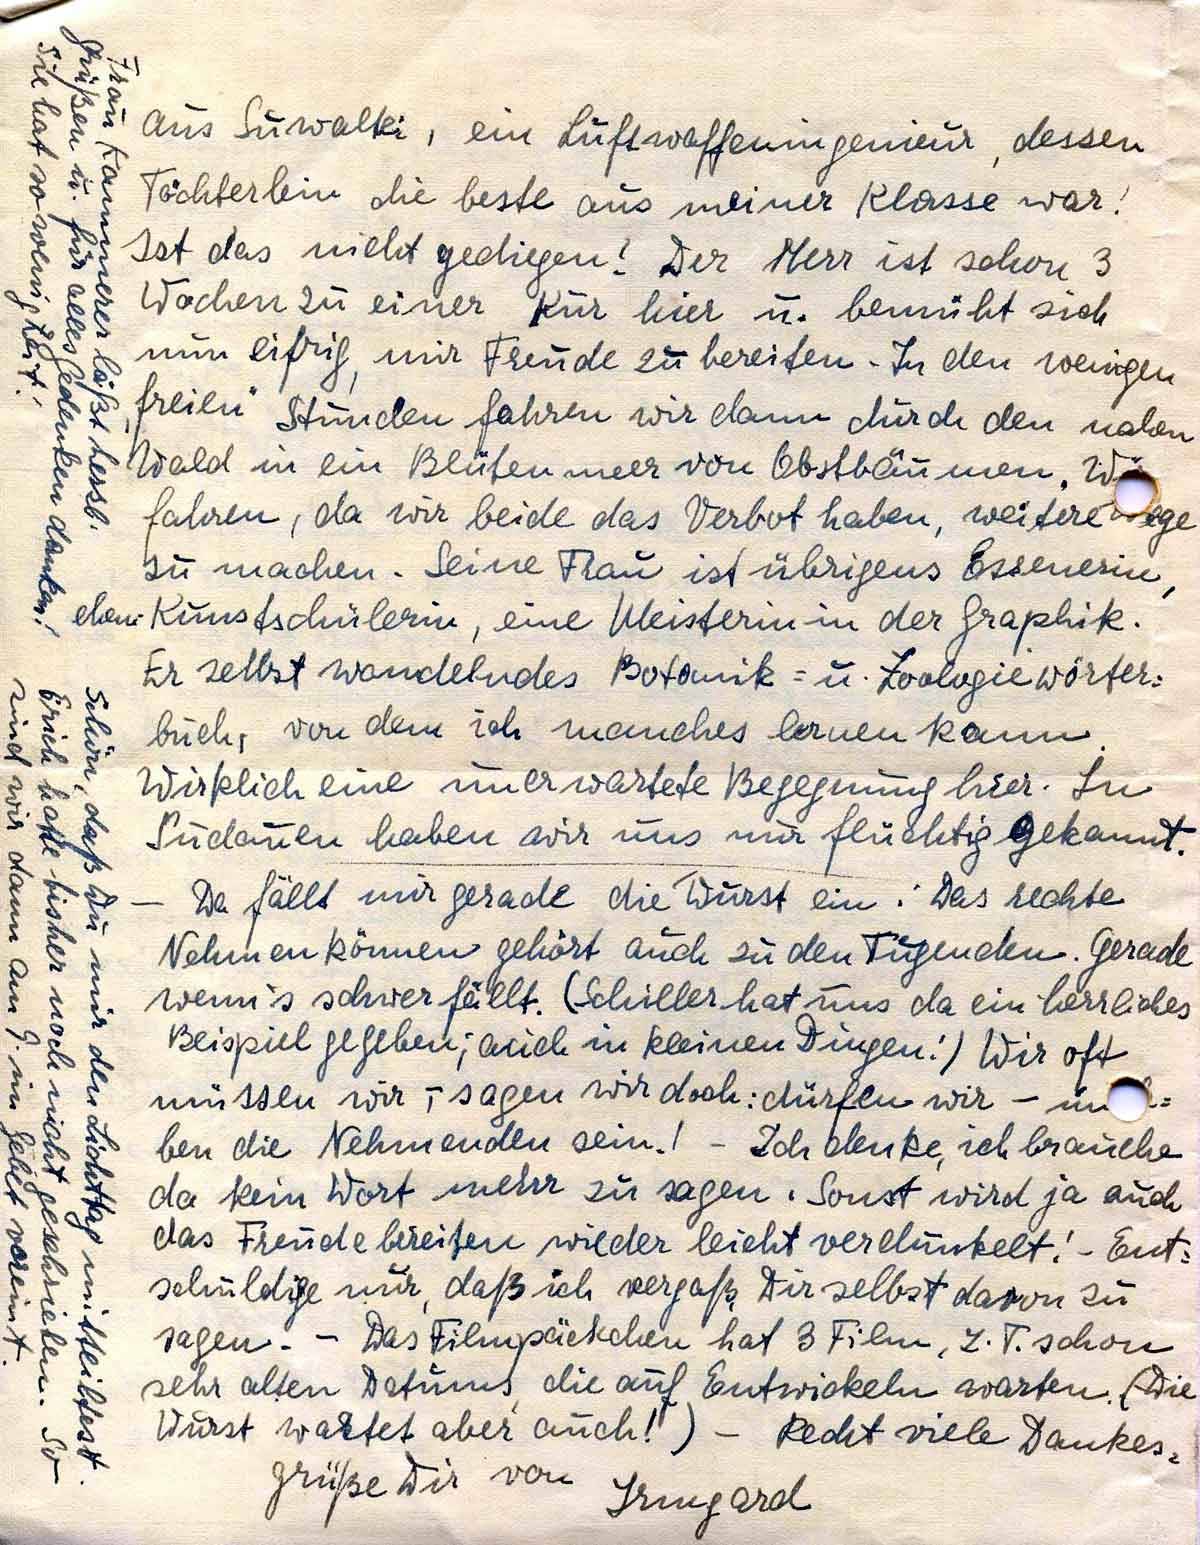 aus Suwalki, ein Luftwaffeningenieur, dessen
Töchterlein die beste aus meiner Klasse war!
Ist das nicht gediegen! Der Herr ist schon 3
Wochen zu einer Kur hier u. bemüht sich
nun eifrig, mir Freude zu bereiten. In den wenigen
"freien" Stunden fahren wir dann durch den nahen
Wald in ein Blütenmeer von Obstbäumen. Wir
fahren, da wir beide das Verbot haben, weitere Wege
zu machen. Seine Frau ist übrigens Essenerin,
ehem. Kunstschülerin, eine Meisterin in der Graphik.
Er selbst wandelndes Botanik= u. Zoologiewörter=
buch, von dem ich manches lernen kann.
Wirklich eine unerwartete Begegnung hier. In
Sudauen haben wir uns nur flüchtig gekannt.
— Da fällt mir gerade die Wurst ein: Das rechte
Nehmenkönnen gehört auch zu den Tugenden. Gerade
wenn's schwer fällt. (Schiller hat uns da ein herrliches
Beispiel gegeben; auch in kleinen Dingen!) Wie oft
müssen wir, – sagen wir doch: dürfen wir –
ben die Nehmenden sein! – Ich denke, ich brauche
da kein Wort mehr zu sagen. Sonst wird ja auch
das Freudebereiten wieder leicht verdunkelt! – Ent=
schuldige nur, daß ich vergaß, Dir selbst davon zu
sagen. – Das Filmpäckchen hat 3 Film, z. T. schon
sehr alten Datums, die auf Entwickeln warten. (Die
Wurst wartet aber auch!) – Recht viele Dankes=
grüße Dir von Irmgard
Frau Kammerer läßt herzl.
grüßen u. für alles Gedenken danken!
Sie hat so wenig Zeit!
Schön, daß Du mir den Lichttag mitteiltest.
Erich hatte bisher noch nicht geschrieben. So
sind wir dann am 9. im Gebet vereint.